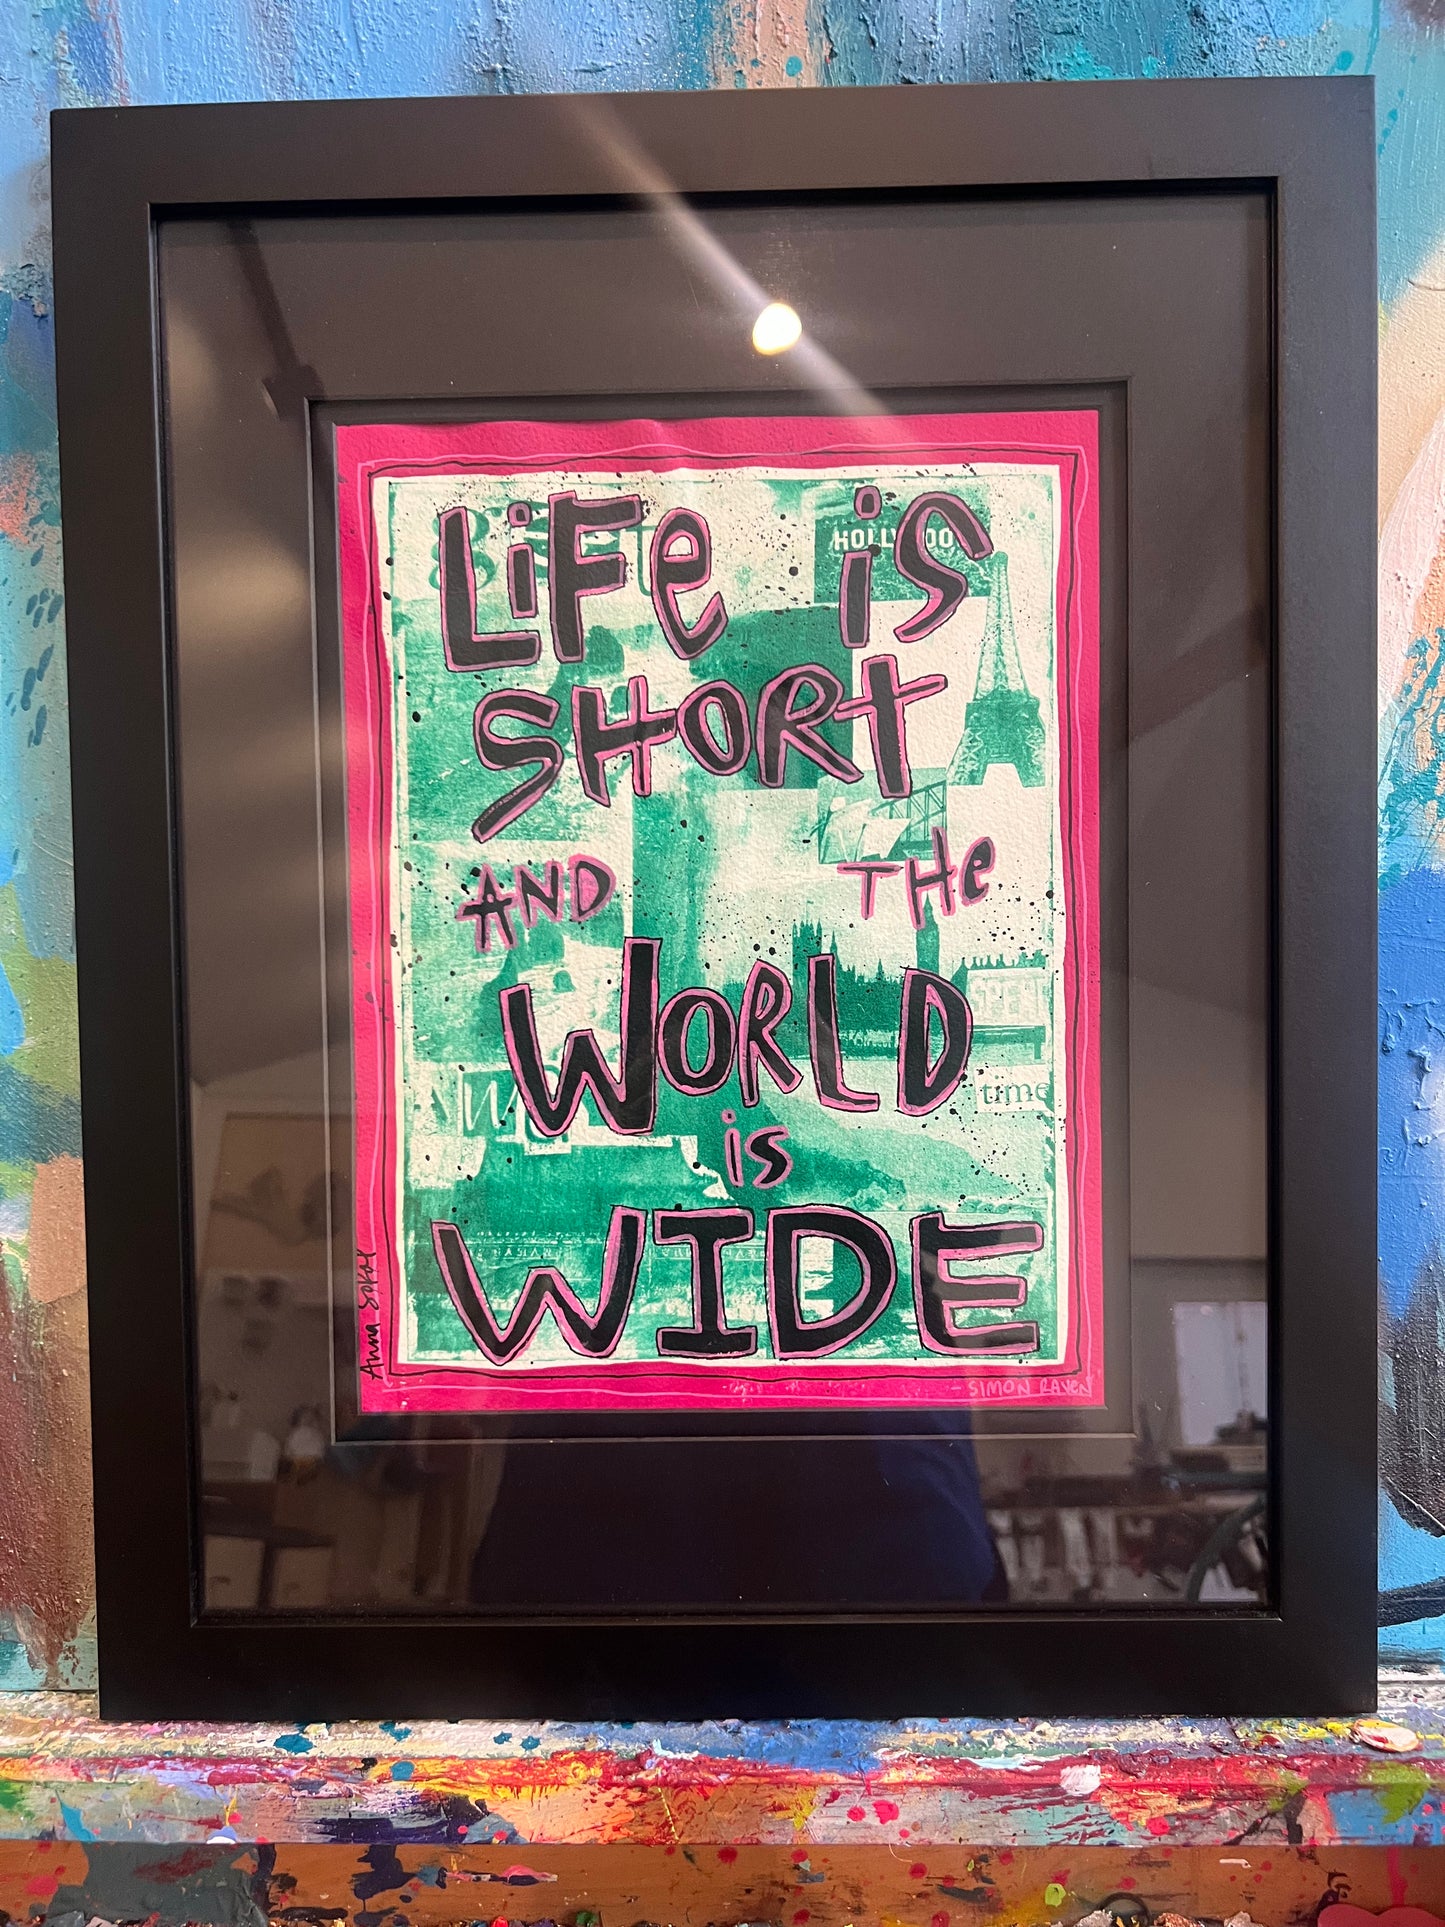 LiFe is
SHORT
AND THE
WORLD
is
WIDE
HOLLYWOOD
time
Anna Sokol
- SIMON RAVEN